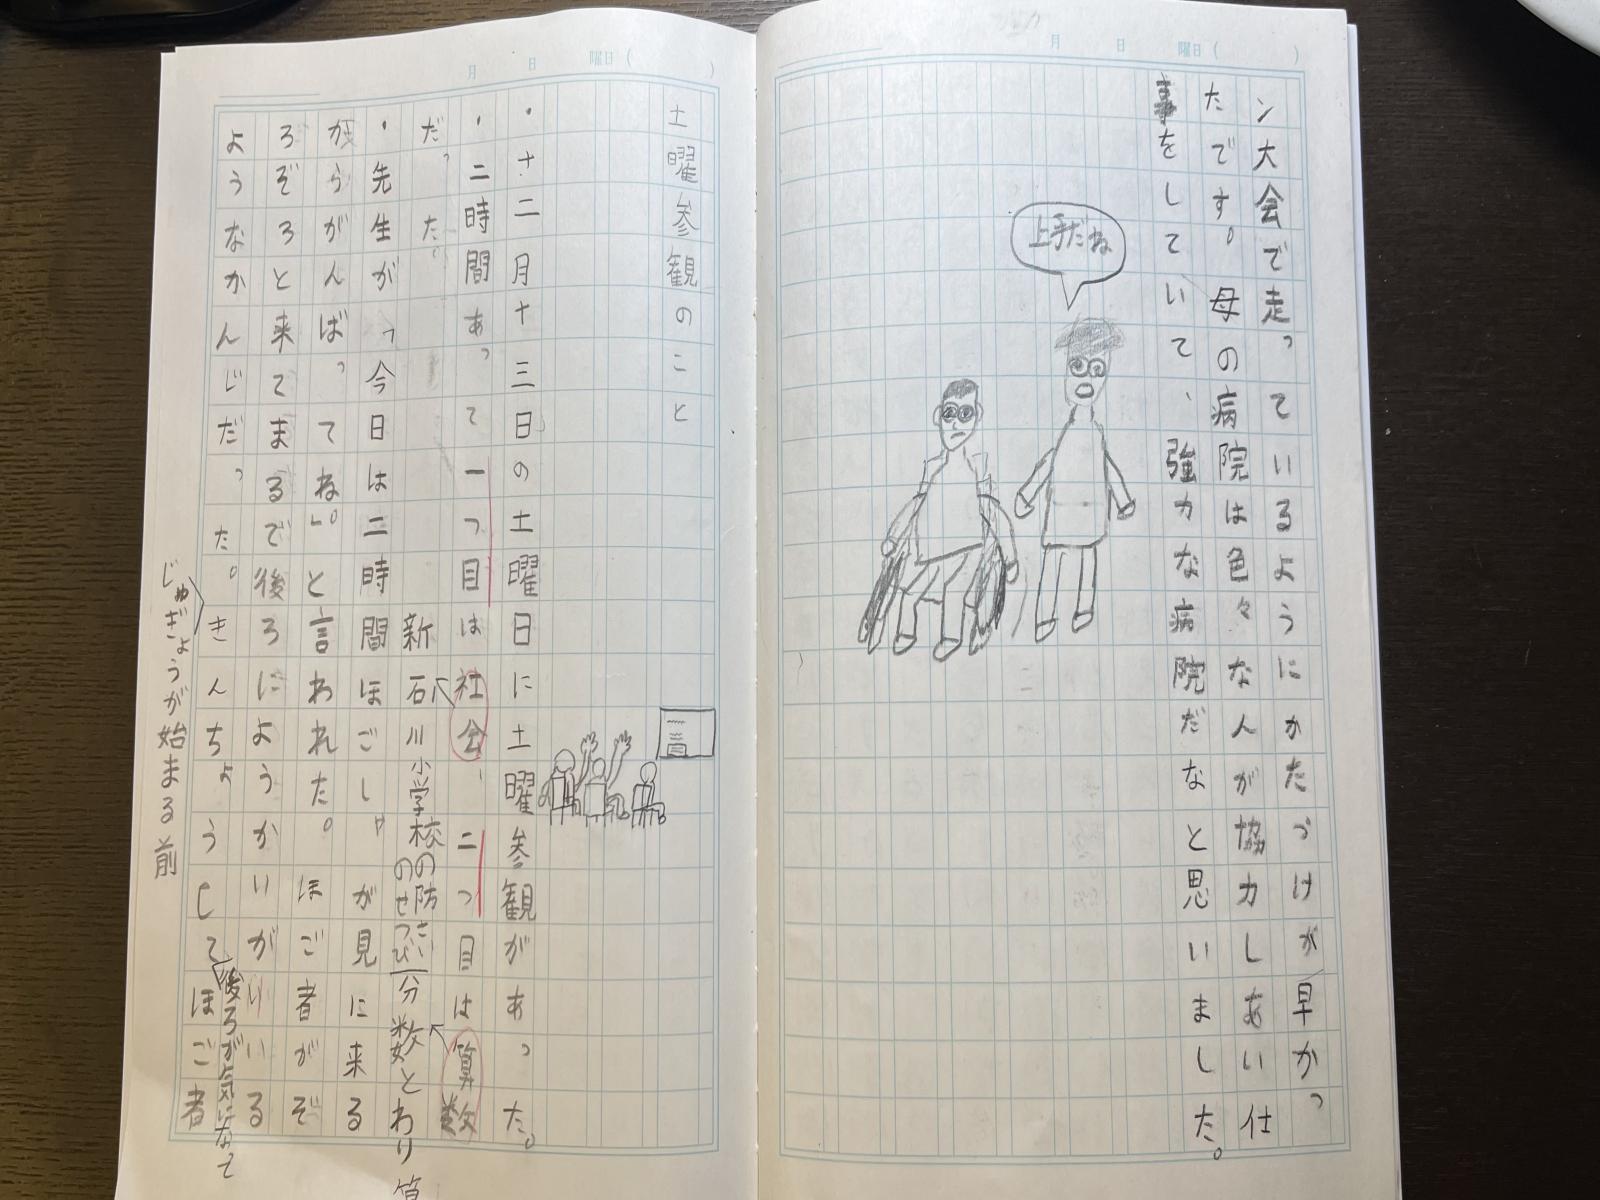 月 日 曜日( )
ン大会で走っているようにかたづけが早かっ
たです。母の病院は色々な人が協力しあい仕
事をしていて、強力な病院だなと思いました。
上手だね
月 日 曜日( )
土曜参観のこと
・十二月十三日の土曜日に土曜参観があった。
・二時間あって一つ目は社会、二つ目は算数
だった。
新石川小学校の防さいのせつび
分数とわり算
・先生が「今日は二時間ほごしゃが見に来る
からがんばってね」。と言われた。ほご者がぞ
ろぞろと来てまるで後ろにようかいがいる
ようなかんじだった。きんちょうしてほご者
後ろが気になって
じゅぎょうが始まる前